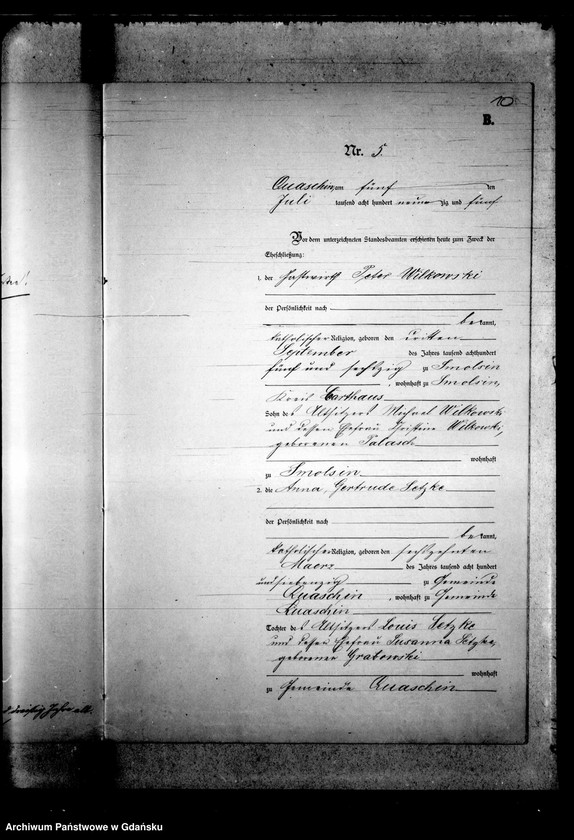 10
B.
Nr. 5.
Quaschin, am fünf ten
Juli tausend acht hundert neunzig und fünf
Vor dem unterzeichneten Standesbeamten erschienen heute zum Zweck der
Eheschließung:
1. der Gastwirth Peter Wilkowski
der Persönlichkeit nach
be kannt,
katholischer Religion, geboren den dritten
September des Jahres tausend achthundert
fünf und sechszig zu Smolsin
, wohnhaft zu Smolsin,
Kreis Carthaus
Sohn des Altsitzers Michael Wilkowski
und dessen Ehefrau Christine Wilkowski,
geborenen Palasch
wohnhaft
zu Smolsin
2. die Anna, Gertrude Setzke
der Persönlichkeit nach
be kannt,
katholischer Religion, geboren den sechszehnten
Maerz des Jahres tausend acht hundert
und siebenzig zu Gemeinde
Quaschin, wohnhaft zu Gemeinde
Quaschin
Tochter des Altsitzers Louis Setzke
und dessen Ehefrau Susanna Setzke,
geborener Grabowski
wohnhaft
zu Gemeinde Quaschin
Jahre alt.
Archiwum Państwowe w Gdańsku